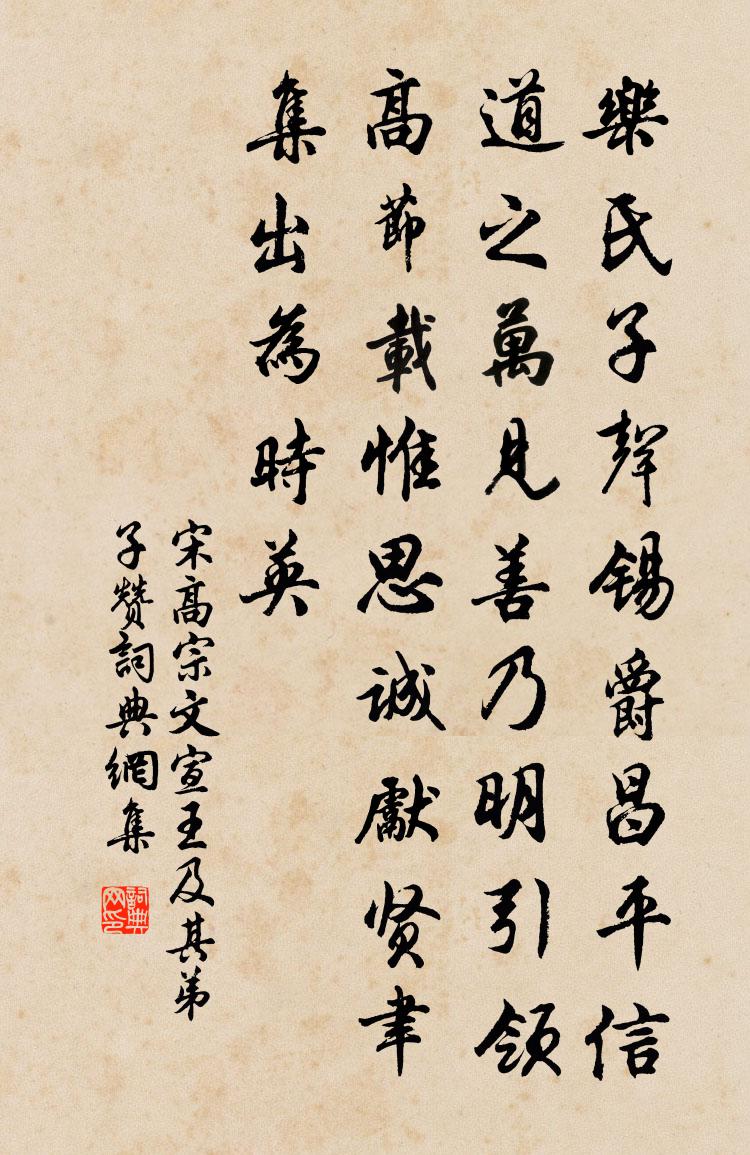 樂氏子聲錫爵昌平信
道之萬見善乃明引領
高節載惟思誠獻賢聿
集出為時英
宋高宗文宣王及其弟
子贊詞典網集
詞典
网印